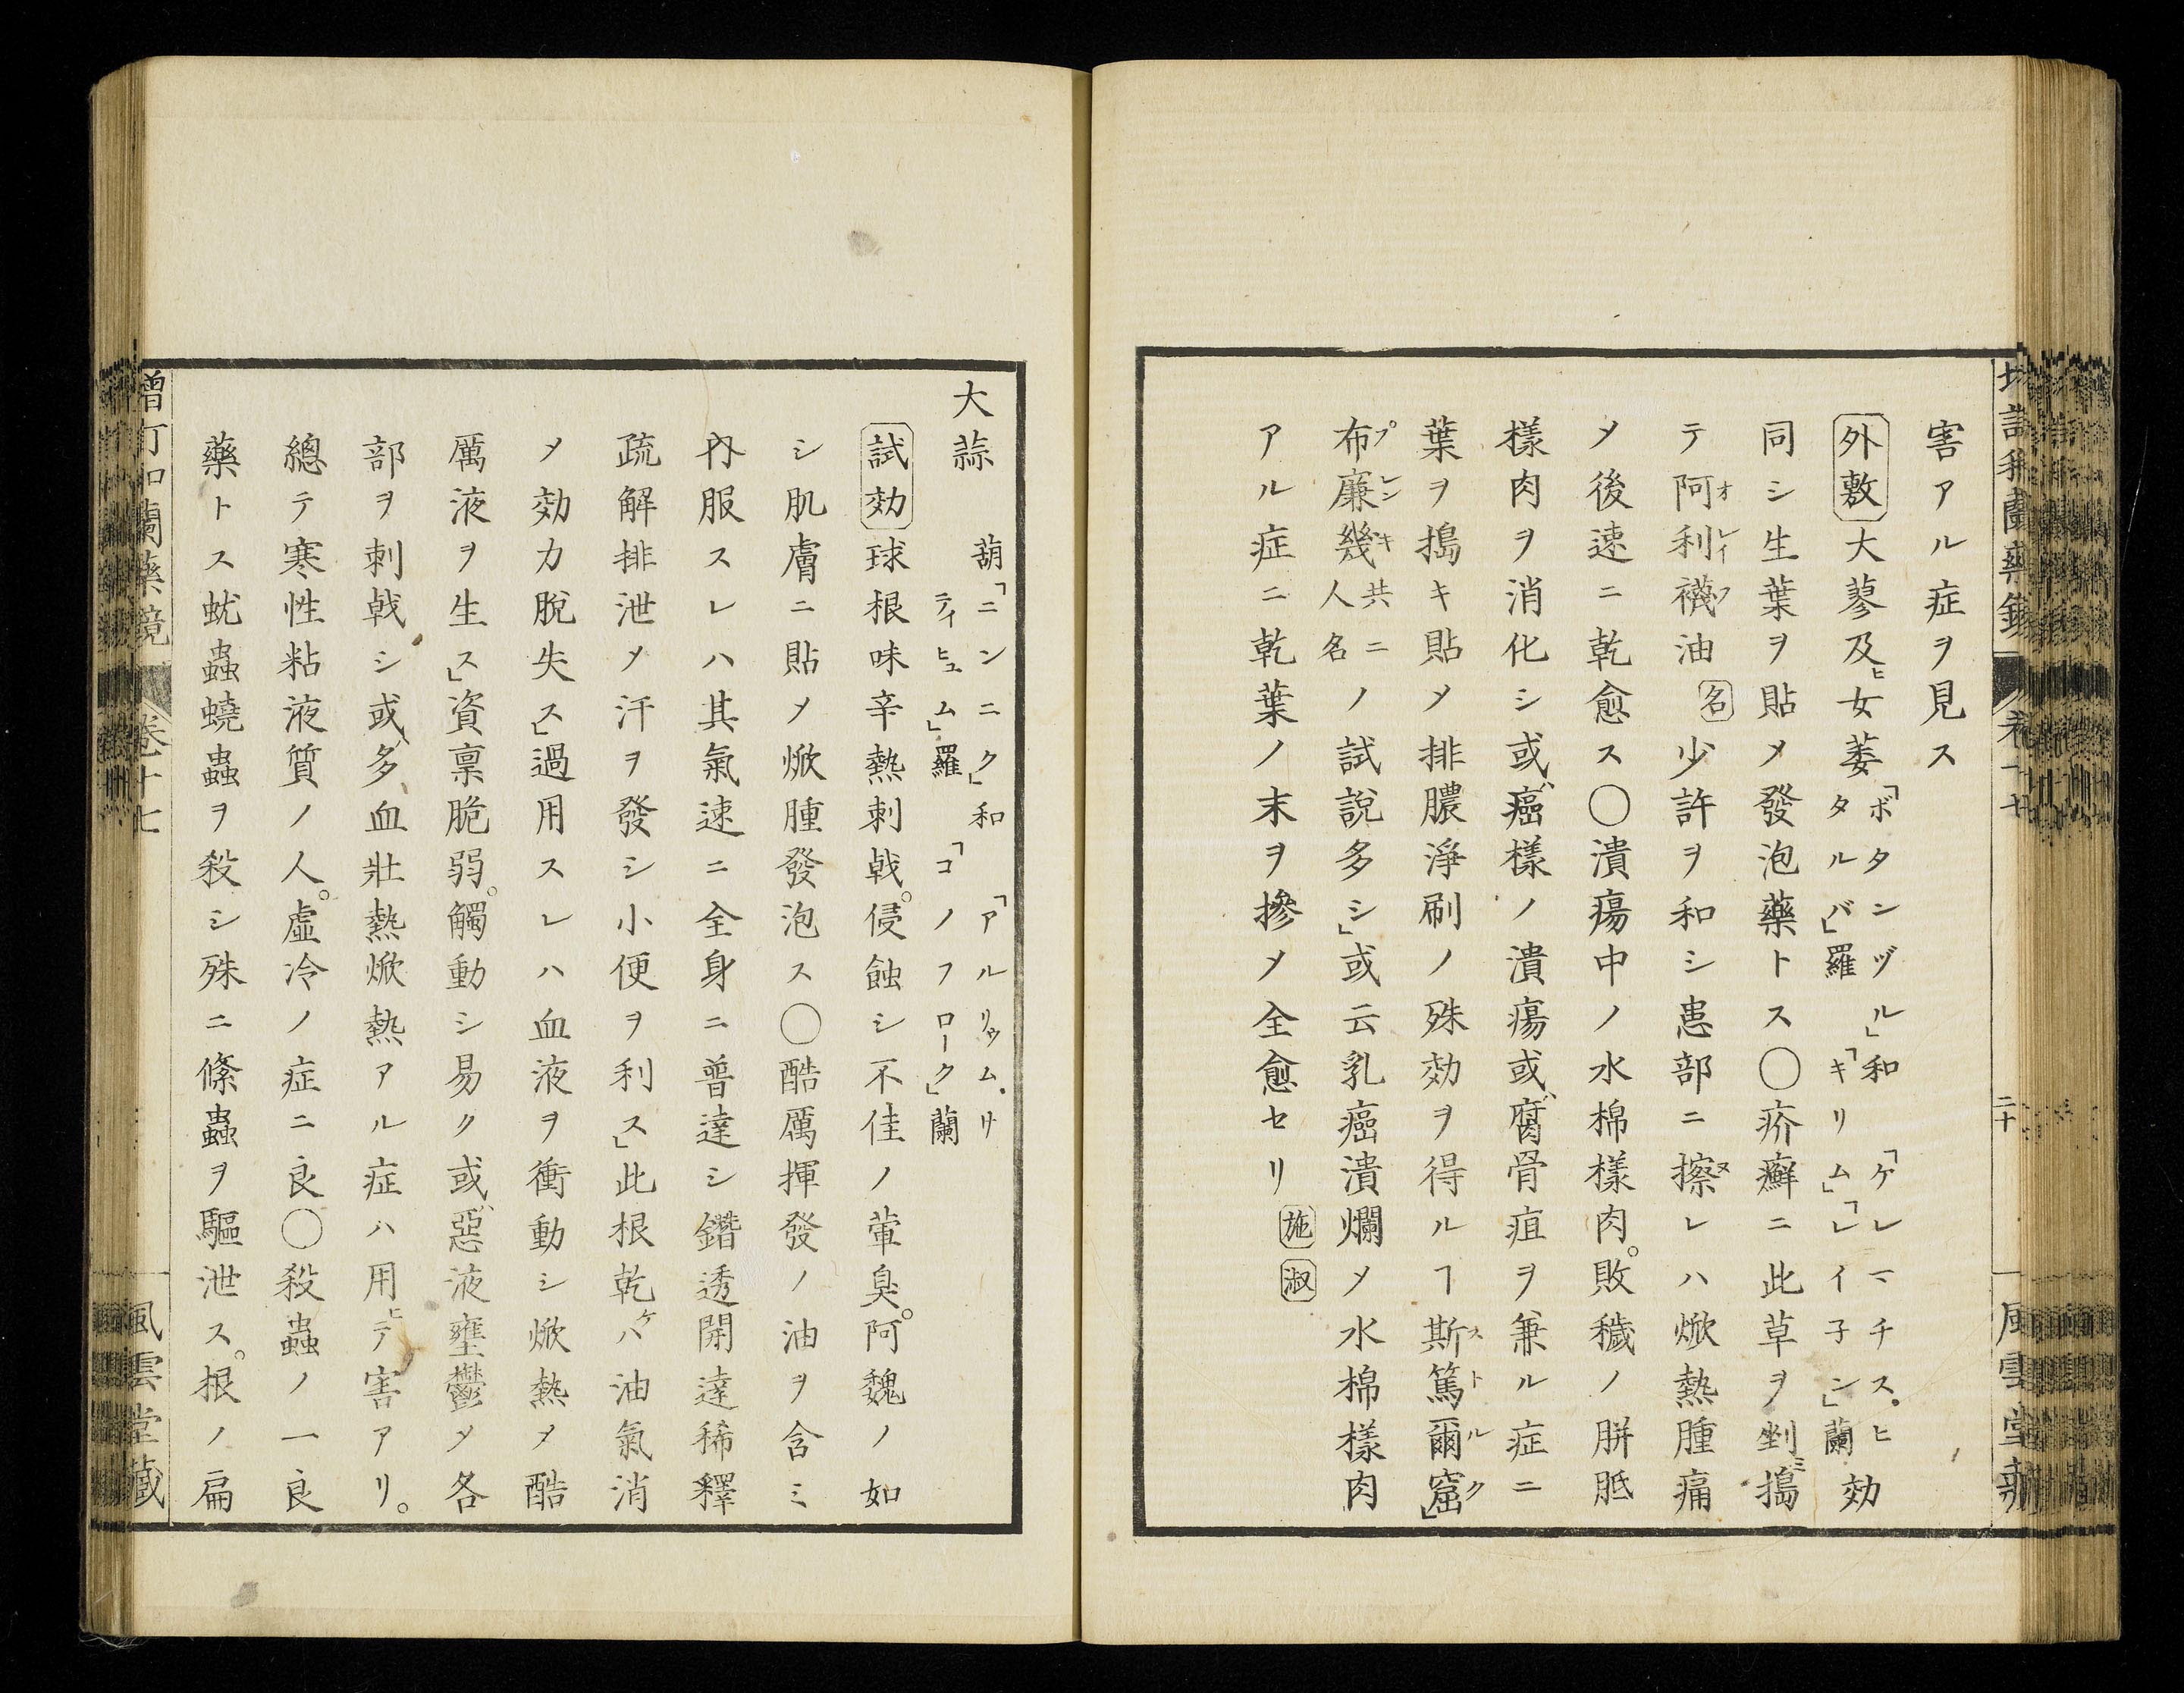 害アル症ヲ見ス
外敷大蓼及ヒ女萎「ボタンヅル」和「ケレマチス・ヒタルバ」羅「キリム」「レイ子ン」蘭効
同シ生葉ヲ貼メ發泡藥トス〇疥癬ニ此草ヲ剉ミ搗
テ阿利襪油名少許ヲ和シ患部ニ擦レハ焮熱腫痛
オレイフ
ヌ
メ後速ニ乾愈ス〇潰瘍中ノ水棉樣肉。敗穢ノ胼胝
樣肉ヲ消化シ或ハ癌樣ノ潰瘍或ハ腐骨疽ヲ兼ル症ニ
葉ヲ搗キ貼メ排膿淨刷ノ殊効ヲ得ルヿ斯篤爾窟」
ストルク
布廉幾共ニ人名ノ試說多シ」或云乳癌潰爛メ水棉樣肉
プレンキ
アル症ニ乾葉ノ末ヲ摻メ全愈セリ施淑
大蒜 葫「ニンニク」和「アルリウム・サティヒュム」羅「コノフローク」蘭
試効球根味辛熱刺戟。侵蝕シ不佳ノ葷臭。阿魏ノ如
シ肌膚ニ貼メ焮腫發泡ス〇酷厲揮發ノ油ヲ含ミ
内服スレハ其氣速ニ全身ニ普達シ鑽透開達稀釋
疏解排泄メ汗ヲ發シ小便ヲ利ス」此根乾ケハ油氣消
メ効力脫失ス」過用スレハ血液ヲ衝動シ焮熱メ酷
厲液ヲ生ス」資稟脆弱。觸動シ易ク或ハ惡液壅鬱メ各
部ヲ刺戟シ或ハ多血壯熱焮熱アル症ハ用ヒテ害アリ。
總テ寒性粘液質ノ人。虛冷ノ症ニ良〇殺蟲ノ一良
藥トス蚘蟲蟯蟲ヲ殺シ殊ニ絛蟲ヲ驅泄ス。根ノ扁
增訂和蘭藥鏡 卷十七 風雲堂藏